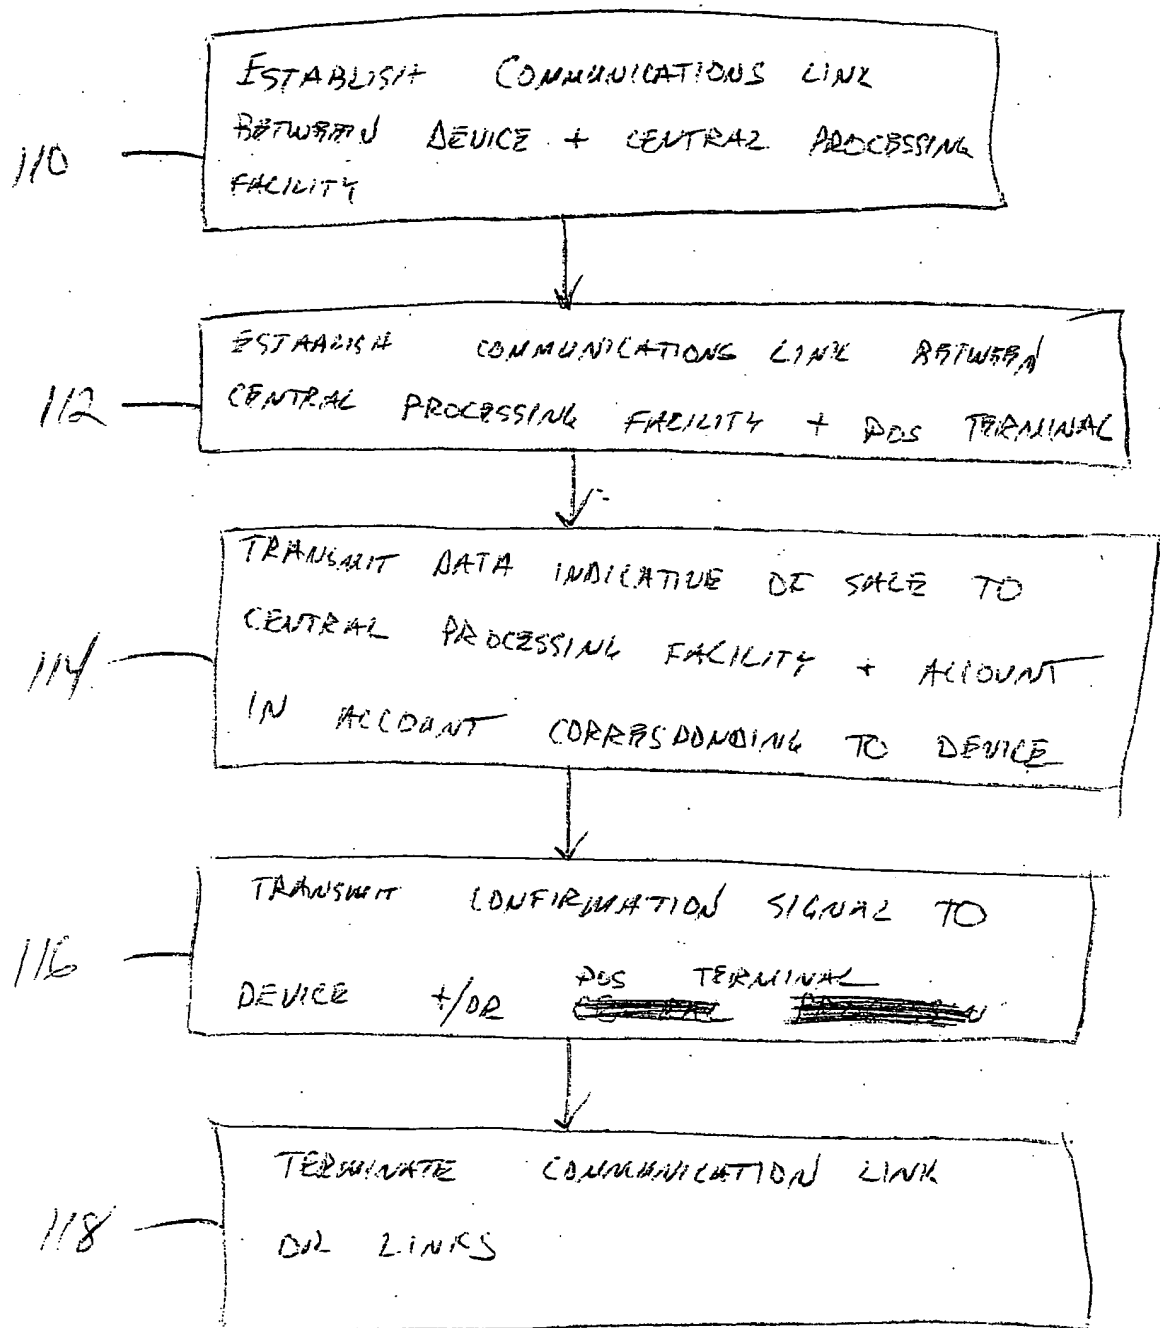 ESTABLISH COMMUNICATIONS LINK
BETWEEN DEVICE + CENTRAL PROCESSING
110
FACILITY
ESTABLISH COMMUNICATIONS LINK BETWEEN
112
CENTRAL PROCESSING FACILITY + POS TERMINAL
TRANSMIT DATA INDICATIVE OF SALE TO
CENTRAL PROCESSING FACILITY + ACCOUNT
114
IN ACCOUNT CORRESPONDING TO DEVICE
TRANSMIT CONFIRMATION SIGNAL TO
116
POS TERMINAL
DEVICE +/OR
TERMINATE COMMUNICATION LINK
118
OR LINKS